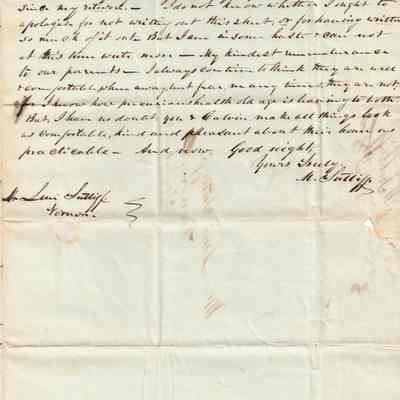 since my return. — I do not know whether I ought to
apologise for not writing out this sheet, or for having written
so much of it out. But I am in some haste & can not
at this time write more — My kindest remembrance
to our parents — I always continue to think they are well
& comfortable, when away, but fear, many times, they are not,
for I know how precarious health old age is leaving to both
But, I have no doubt, you & Calvin make all things look
as comfortable, kind and pleasant about their home as
practicable — And now, Good night,
Yours truly
M. Sutliff
Levi Sutliff
Vernon